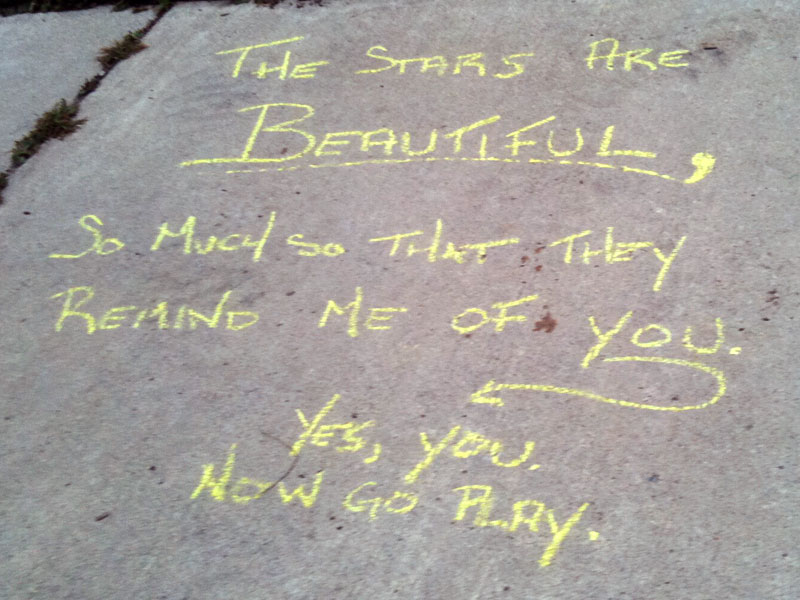 The Stars Are
Beautiful,
So Much so that they
Remind me of you.
Yes, you.
Now go play.